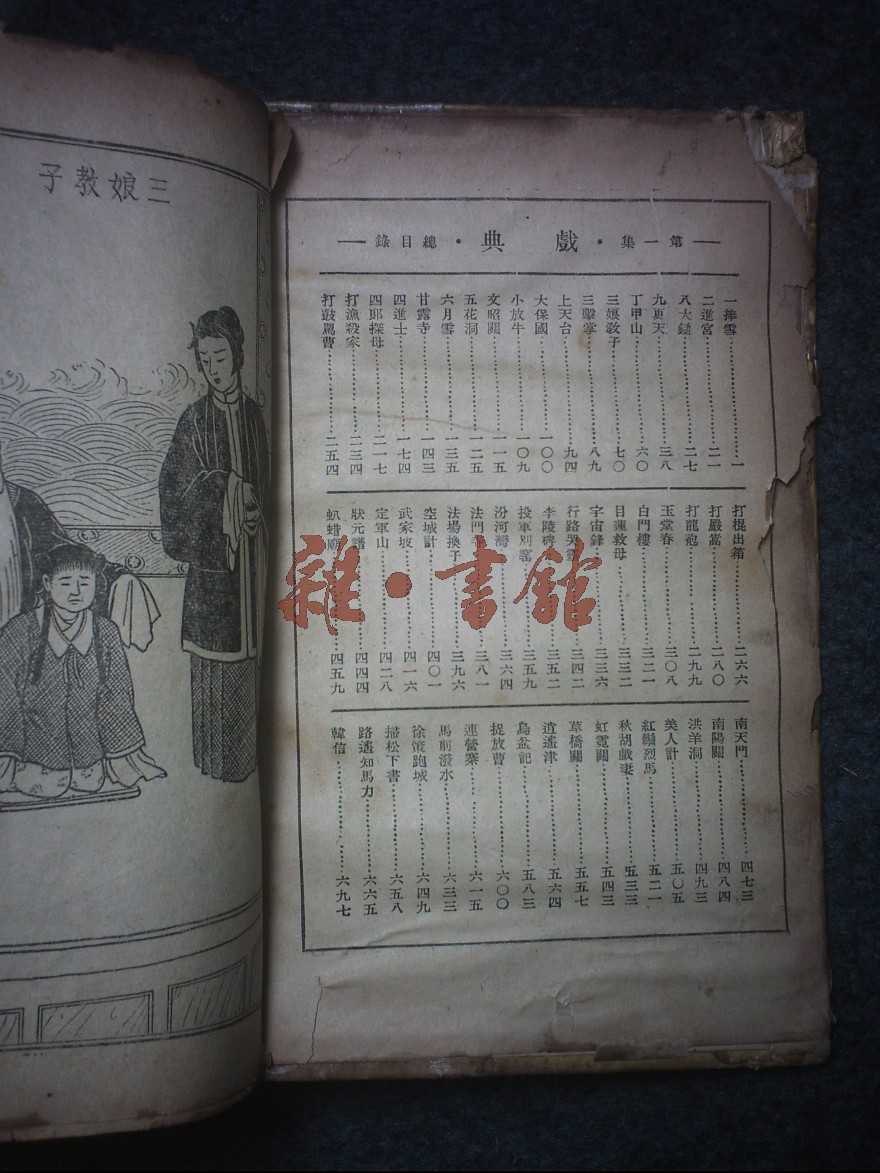 三娘教子
第一集・戲典・總目錄
一捧雪 一
二進宮 二一
八大鎚 二七
九更天 三八
丁甲山 六〇
三娘教子 七〇
三擊掌 八九
上天台 九四
大保國 一〇〇
小放牛 一〇九
文昭關 一一五
五花洞 一二五
六月雪 一三五
甘露寺 一四三
四進士 一七四
四郎探母 二一七
打漁殺家 二三四
打鼓罵曹 二五四
打棍出箱 二六六
打嚴嵩 二八〇
打龍袍 二九九
玉堂春 三〇八
白門樓 三二一
目蓮救母 三三二
宇宙鋒 三三六
行路哭靈 三四二
李陵碑 三五二
投軍別窰 三五九
汾河灣 三六四
法門寺 三八一
法場換子 三九六
空城計 四〇一
武家坡 四一六
定軍山 四二八
狀元譜 四四四
虮蜡廟 四五九
南天門 四七三
南陽關 四八四
洪羊洞 四九三
美人計 五〇五
紅鬃烈馬 五二一
秋胡戲妻 五三三
虹霓關 五四三
草橋關 五五七
逍遙津 五六四
烏盆記 五八三
捉放曹 六〇〇
連營寨 六一五
馬前潑水 六三三
徐策跑城 六四九
掃松下書 六五八
路遙知馬力 六六五
韓信 六九七
雜・書館